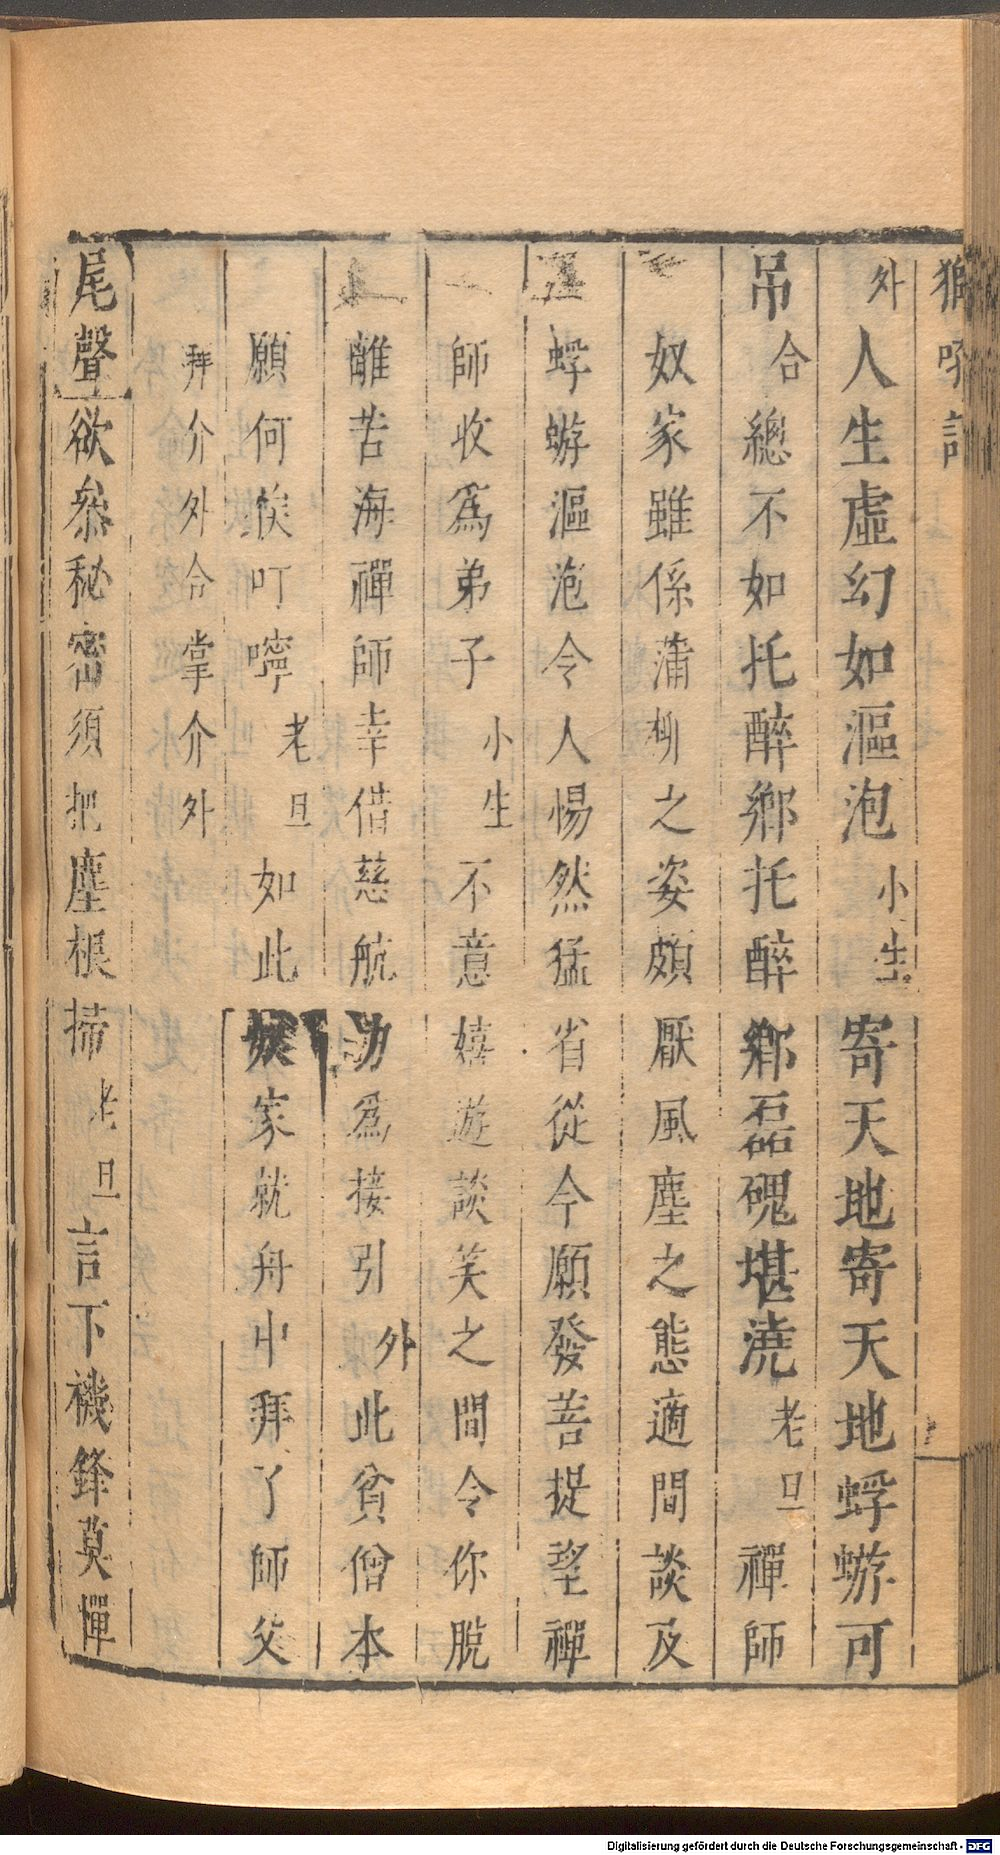 外人生虛幻如漚泡小生寄天地寄天地蜉蝣可
吊合總不如托醉鄉托醉鄉磊磈堪澆老旦禪師
奴家雖係蒲柳之姿頗厭風塵之態適間談及
蜉蝣漚泡令人惕然猛省從今願發菩提望禪
師收爲弟子小生不意嬉遊談笑之間令你脫
離苦海禪師幸借慈航力爲接引外此貧僧本
願何俟叮嚀老旦如此奴家就舟中拜了師父
拜介外合掌介外
尾聲欲叅秘密須把塵根掃老旦言下機鋒莫憚
Digitalisierung gefördert durch die Deutsche Forschungsgemeinschaft - DFG